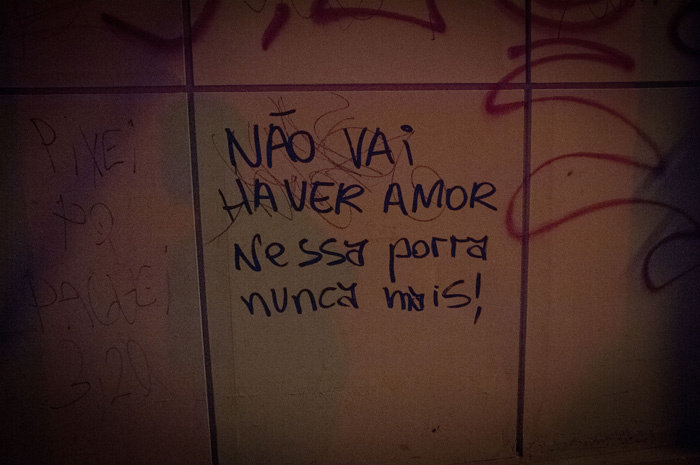 NÃO VAi
HAVER AMOR
Nessa porra
nunca mais!
PiXEi
PQ
PAGUEi
3,20